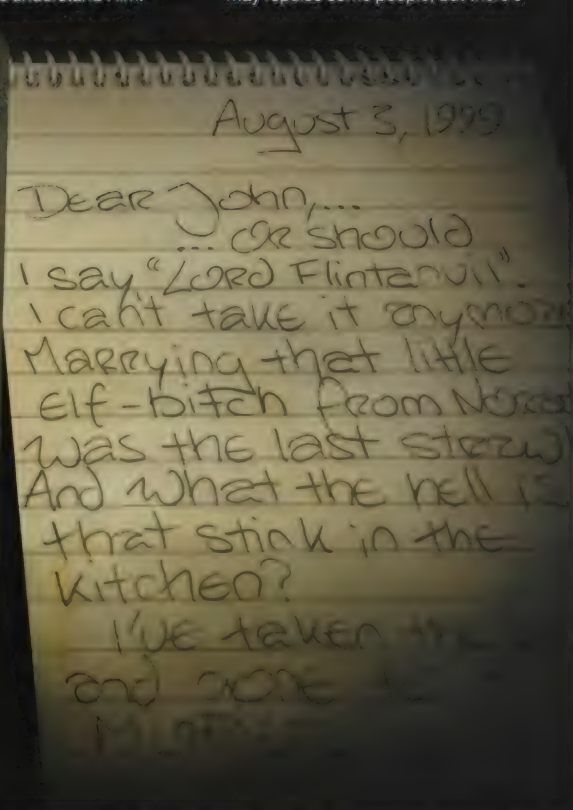 may repulse some people, but there's
August 3, 1999
Dear John,...
... or should
I say "Lord Flintanvil".
I can't take it anymore
Marrying that little
elf-bitch from
was the last straw!
And what the hell is
that stink in the
kitchen?
I've taken the
and gone to